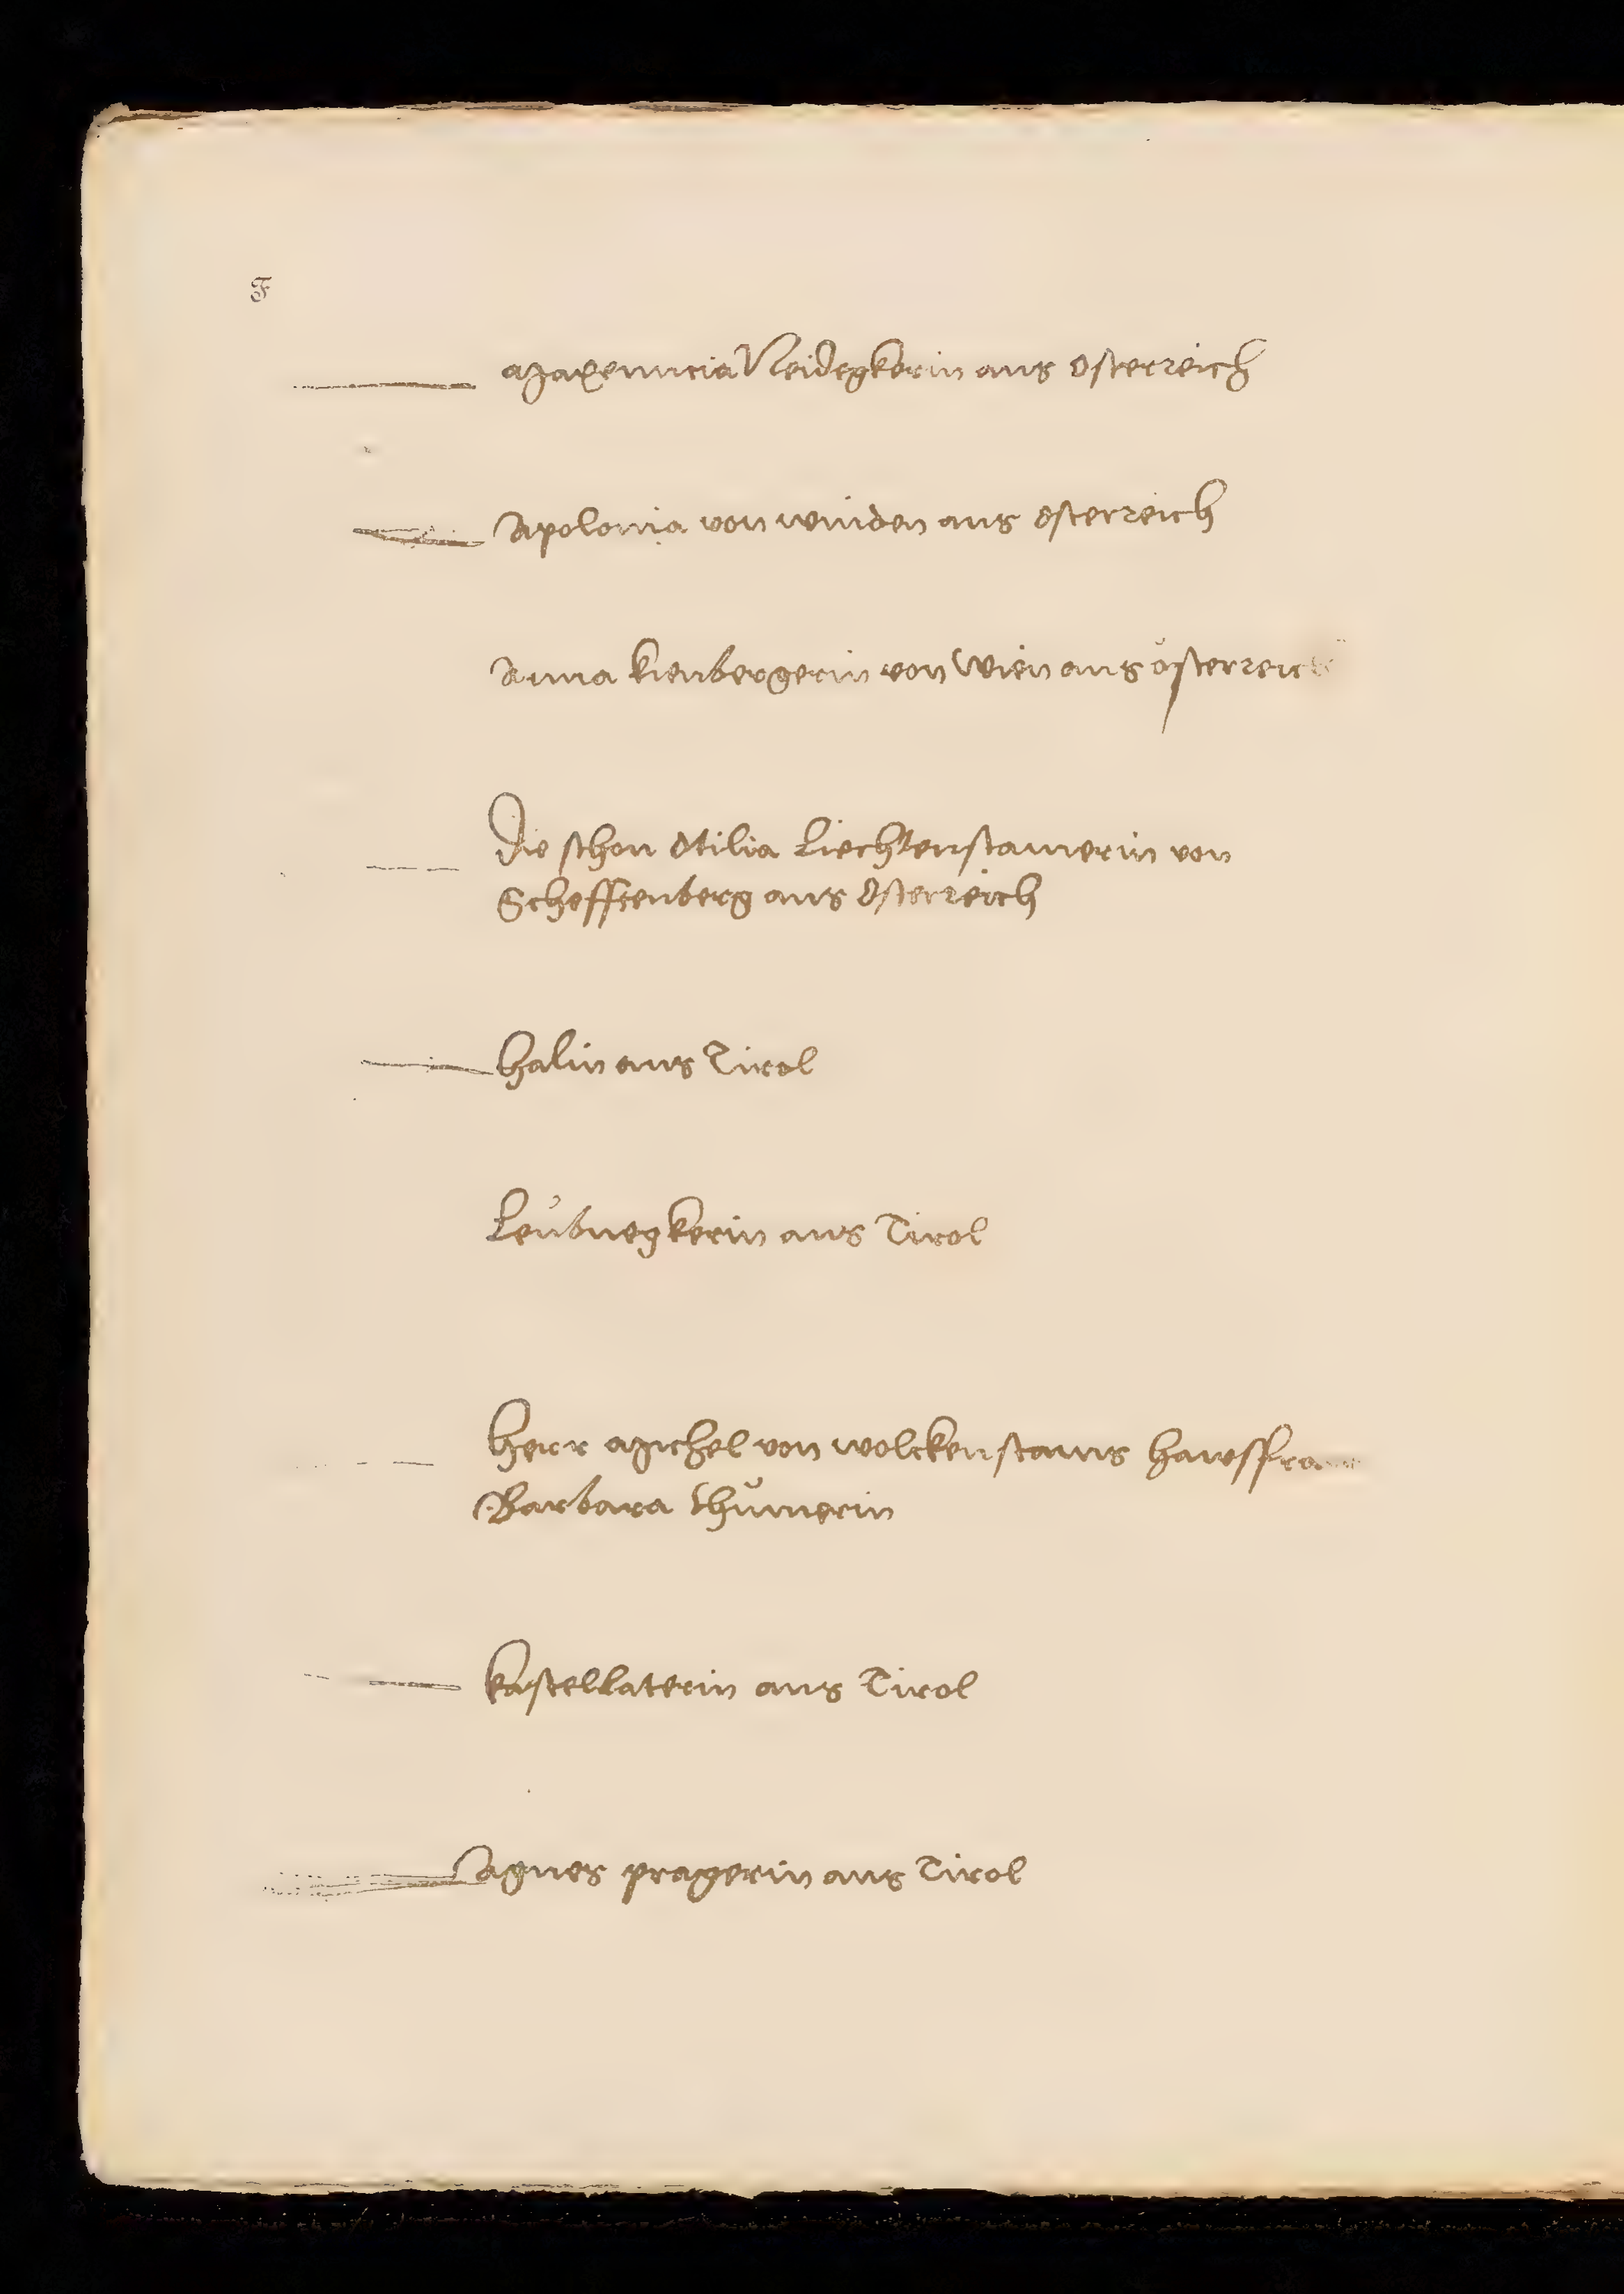 F
Maxenncia Neidegkerin aus Osterreich
Apolonia von winden aus osterreich
Anna kienbergerin von Wien aus österreich
Die schon Otilia Liechtenstainerin von
Schefftenberg aus Osterreich
halin aus Tirol
Leübnegkerin aus Tirol
Herr Michel von wolckenstains hawsffraw
Barbara thünnerin
kastellaterin aus Tirol
Agnes pragerin aus Tirol